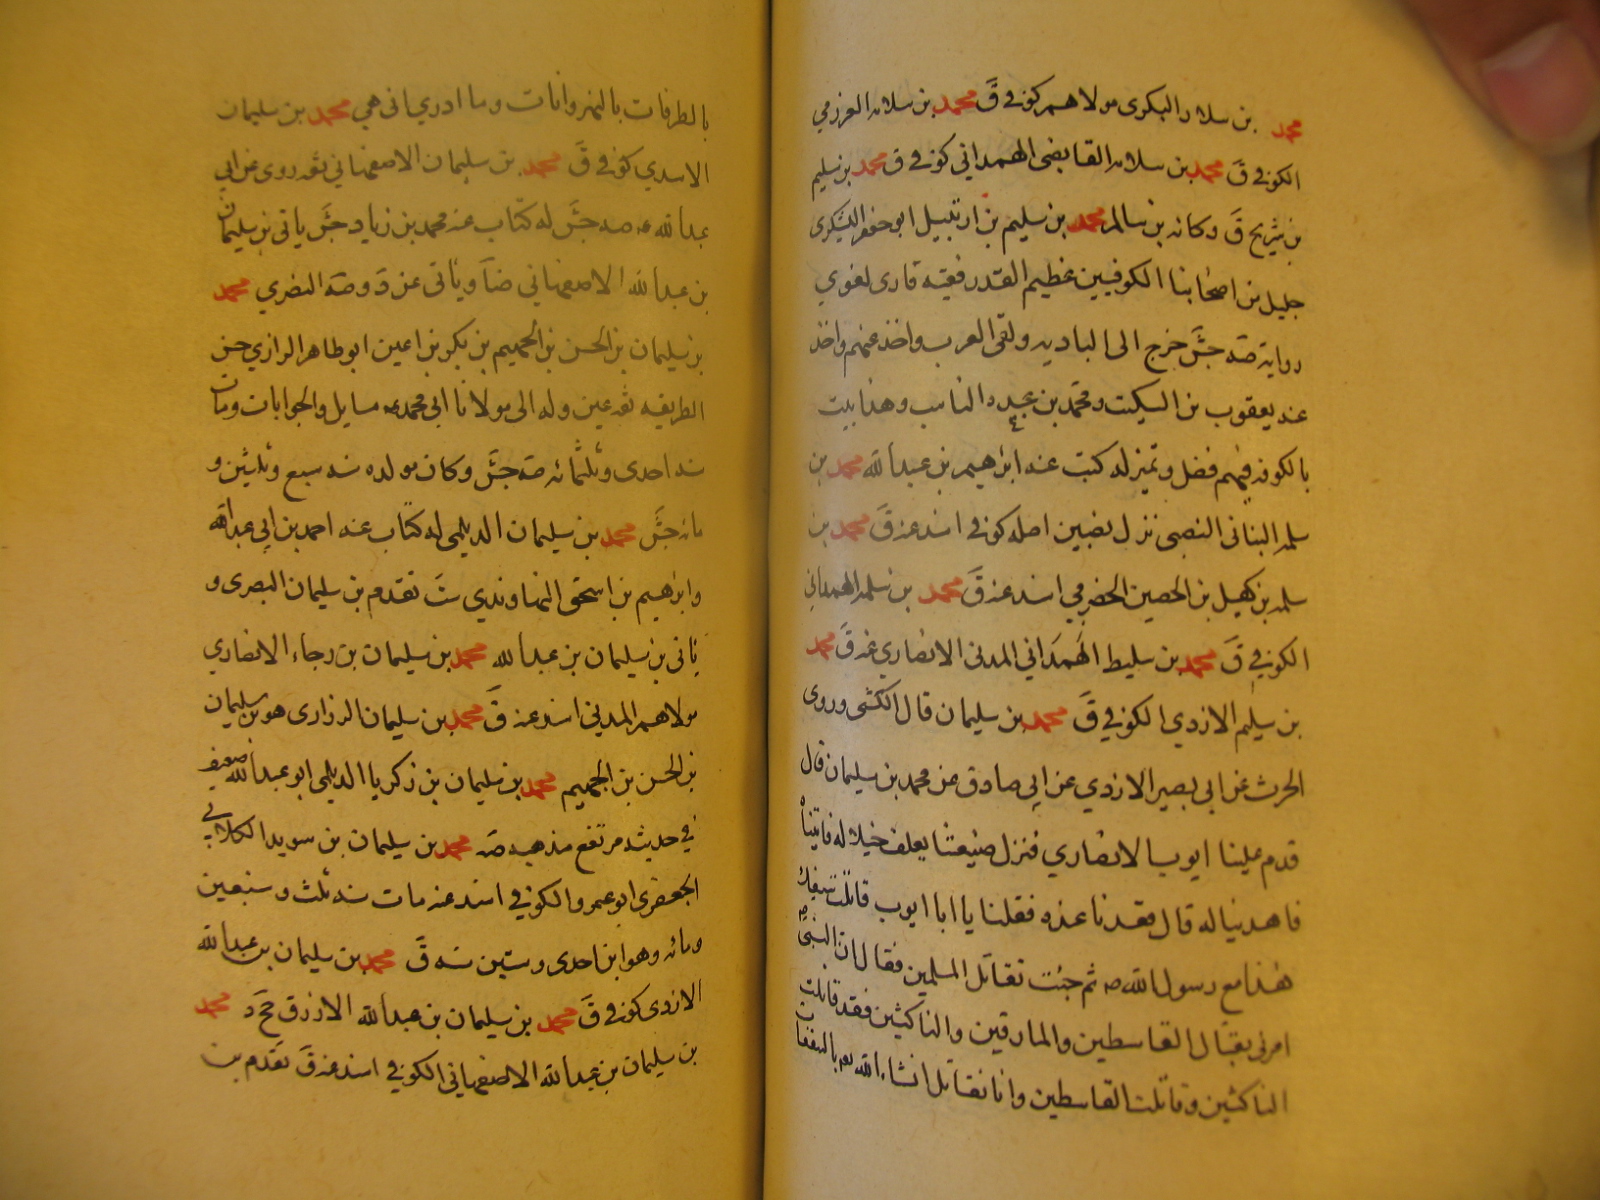 محمد بن سلار البكرى مولاهم كوفي ق محمد بن سلام العرزمي
الكوفي ق محمد بن سلامه القابضى الهمداني كوفي ق محمد بن سليم
بن شريح ق وكانه بن سالم محمد بن سليم بن ارتبيل ابو جعفر اليشكرى
جليل من اصحابنا الكوفيين عظيم القدر فقيه قارى لغوي
رواية صه جش خرج الى الباديه ولقى العرب واخذ عنهم واخذ
عنه يعقوب بن السكيت ومحمد بن عبده الناسب وهذا بيت
بالكوفه فيهم فضل وتميز له كتب عنه ابرهيم بن عبدالله محمد بن
سلمه البنانى النصبى نزل نصيبين اصله كوفي اسند عنه ق محمد بن
سلمه بن كهيل بن الحصين الحضرمي اسند عنه ق محمد بن سلمه الهمداني
الكوفي ق محمد بن سليط الهمداني المدنى الانصاري عنه ق محمد
بن سليم الازدي الكوفي ق محمد بن سليمان قال الكشى وروى
الحرث عن ابى بصير الازدي عن ابي صادق عن محمد بن سليمان قال
قدم علينا ايوب الانصاري فنزل ضيعتنا يعلف خيلا له فاتيناه
فاهدينا له قال فقعدنا عنده فقلنا يا ابا ايوب قاتلت بسيفك
هذا مع رسول الله ص ثم جئت تقاتل المسلمين فقال ان النبي ص
امرني بقتال القاسطين والمارقين والناكثين فقد قاتلت
الناكثين وقاتلت القاسطين وانا نقاتل انشاء الله بالسعفات
بالطرفات بالنهروانات وما ادري انى هي محمد بن سليمان
الاسدي كوفي ق محمد بن سليمان الاصفهاني ثقه روى عن ابي
عبدالله ع صه جش له كتاب عنه محمد بن زياد جش ياتى بن سليمان
بن عبدالله الاصفهاني ضا وياتى عن ق وصه النصرى محمد
بن سليمان بن الحسن بن الجهيم بن بكير بن اعين ابو طاهر الرازي حسن
الطريقه ثقه عين وله الى مولانا ابي محمد ع مسايل والجوابات ومات
سنه احدى وثلثمائه صه جش وكان مولده سنه سبع وثلثين و
مائه جش محمد بن سليمان الديلمى له كتاب عنه احمد بن ابي عبدالله
وابرهيم بن اسحق النهاوندي ست تقدم بن سليمان البصرى و
ياتى بن سليمان بن عبدالله محمد بن سليمان بن رجاء الانصارى
مولاهم المدينى اسند عنه ق محمد بن سليمان الزرارى هو بن سليمان
بن الحسن بن الجهيم محمد بن سليمان بن زكريا الديلمى ابو عبدالله ضعيف
في حديثه مرتفع مذهبه صه محمد بن سليمان بن سويد الكلابي
الجعفرى ابو عمرو الكوفي اسند عنه مات سنه ثلث وسبعين
ومائه وهو ابن احدى وستين سنه ق محمد بن سليمان بن عبدالله
الازدى كوفي ق محمد بن سليمان بن عبدالله الازرق محمد
بن سليمان بن عبدالله الاصفهاني الكوفي اسند عنه ق تقدم بن